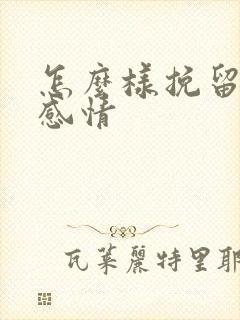 怎麼樣挽留
感情
瓦萊麗特里耶